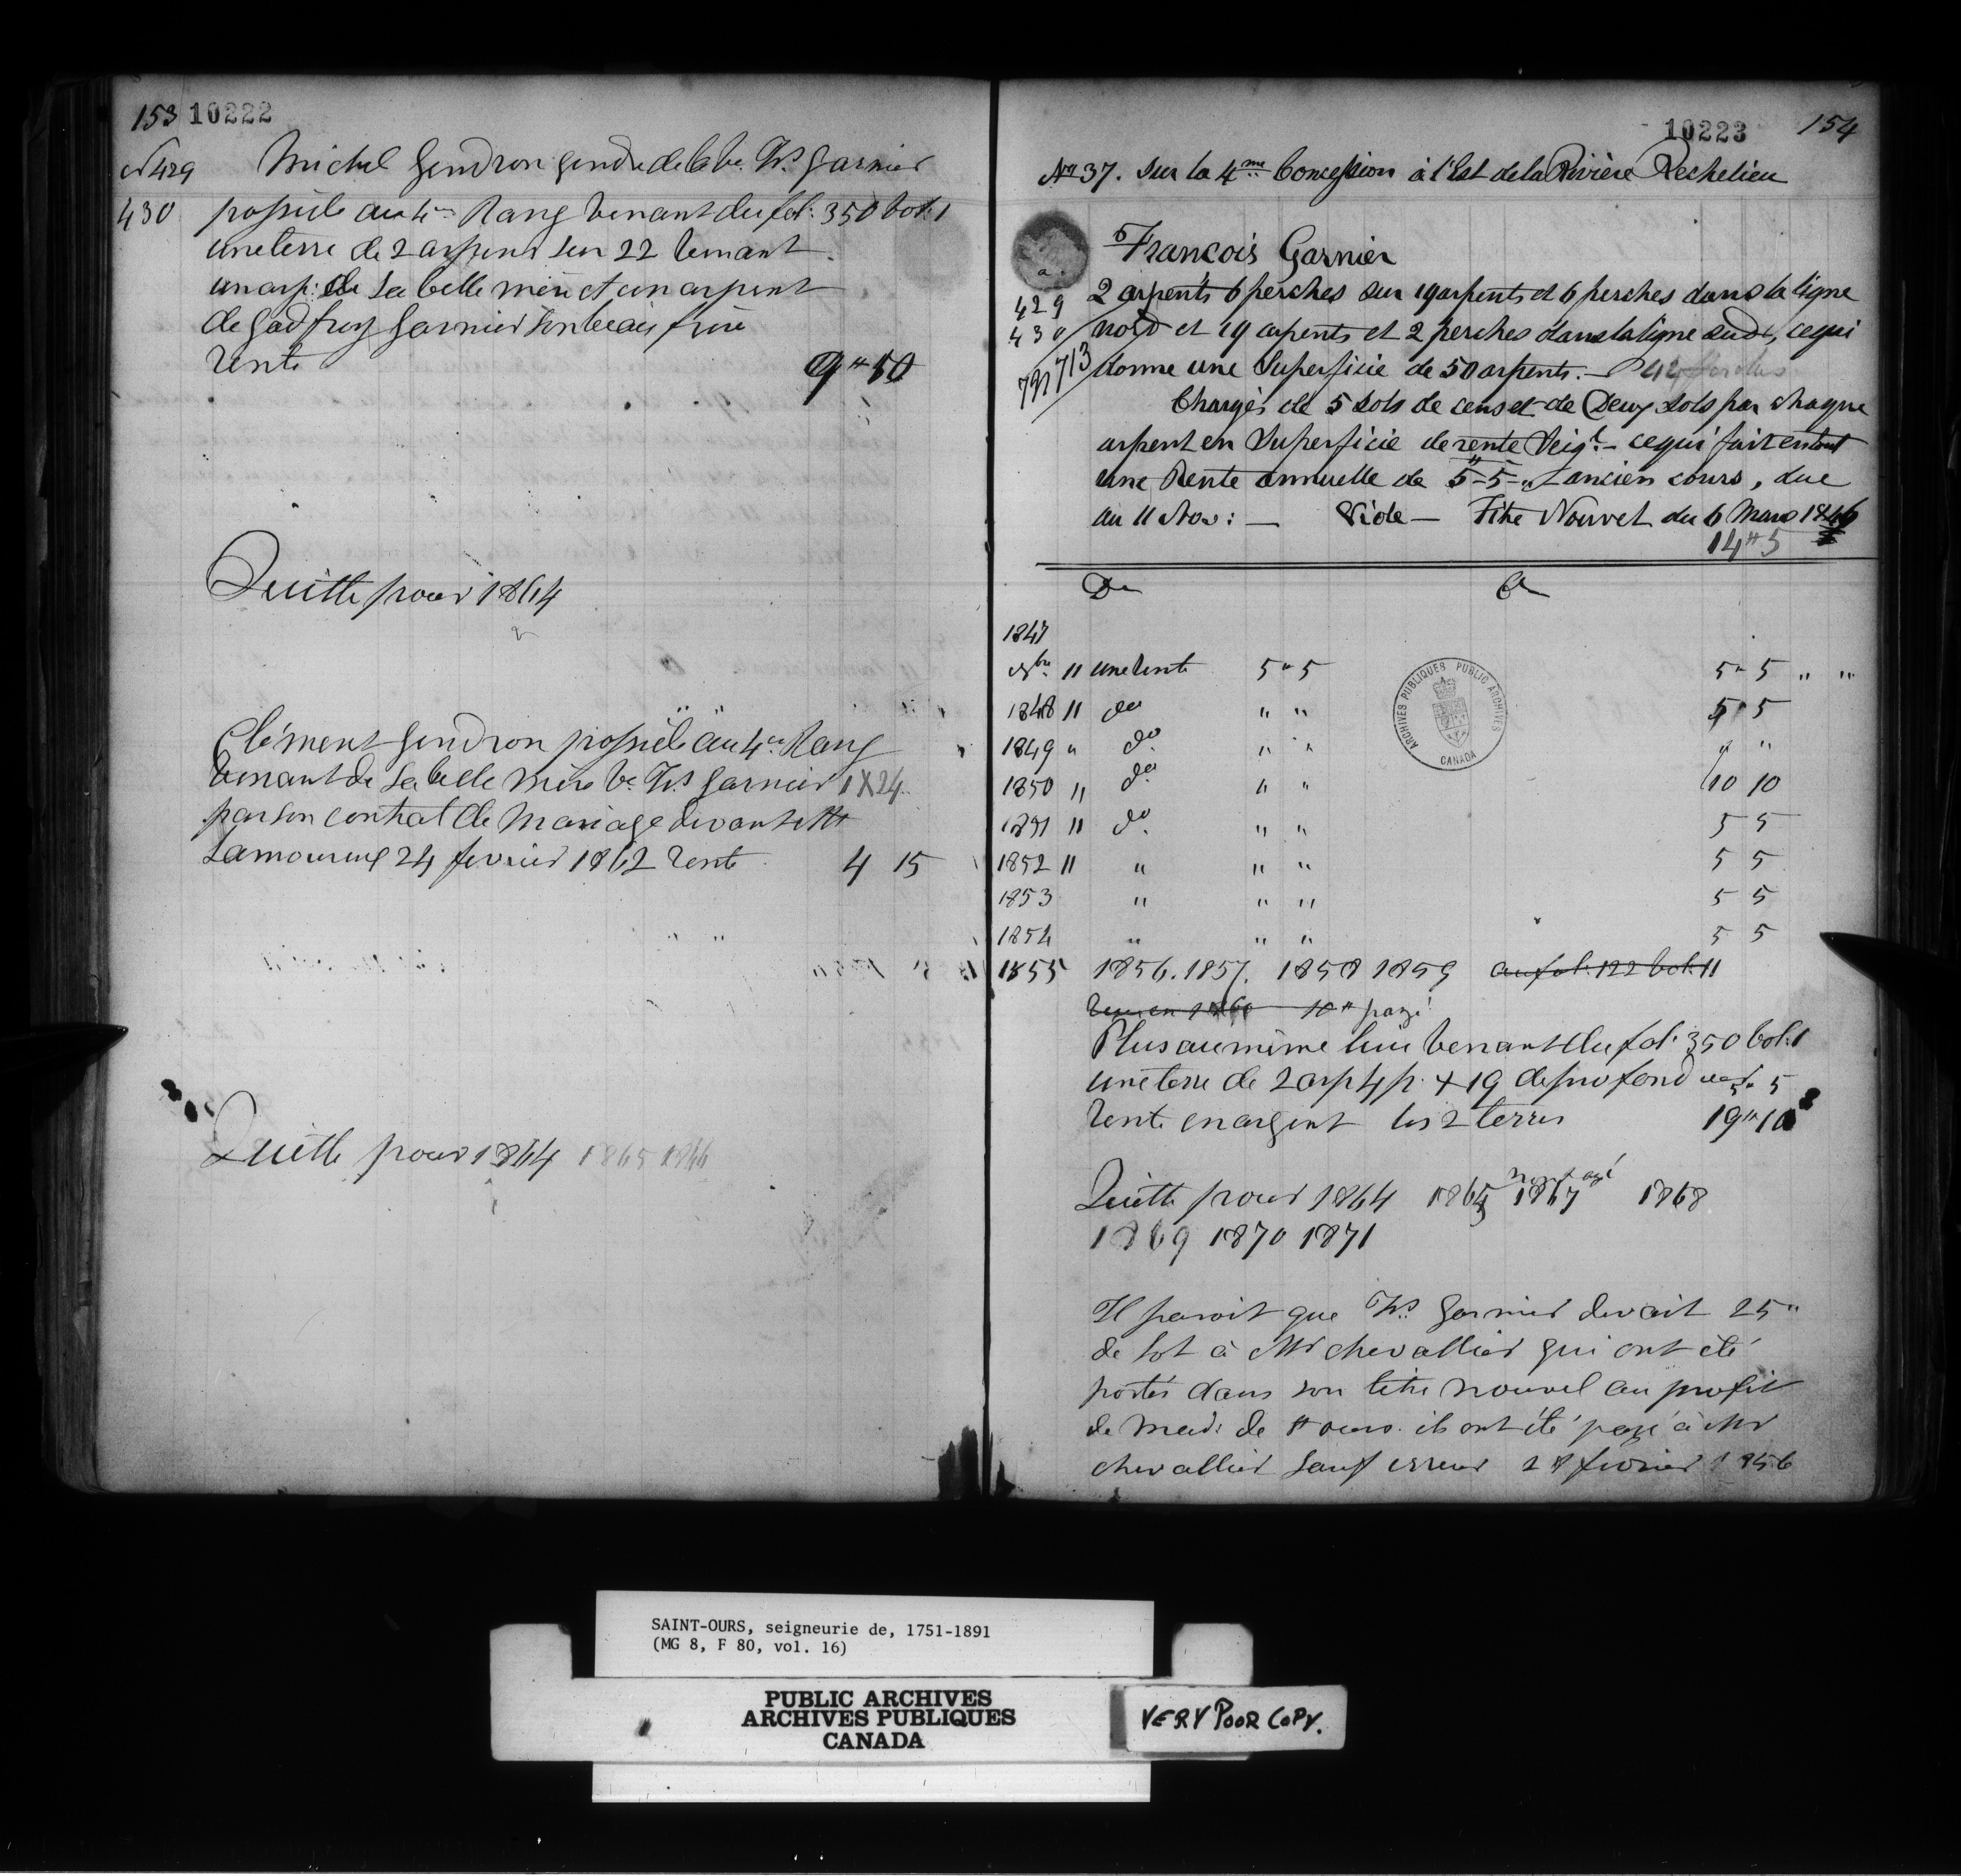 153 10222
N 429 Michel Gendron gendre de la Ve. Frs Garnier
430 possède au 4me Rang venant du fol: 350 vol: 1
une terre de 2 arpens sur 22 venant
un arp: de sa belle mère et un arpent
de Godfroy Garnier son beau frère
rente 9 " 10
Quitte pour 1864
Clément Gendron possède au 4me Rang
venant de sa belle mère Ve Frs Garnier 1 X 24
par son contrat de mariage devant Mtr
Lamoureux 24 fevrier 1862 rente 4 15
Quitte pour 1864 1865 1866
10223 154
No 37. Sur la 4me Concession à l'Est de la Rivière Rechelieu
François Garnier
429 2 arpents 6 perches sur 19 arpents et 6 perches dans la ligne
430 nord et 19 arpents et 2 perches dans la ligne sud, ce qui
713 donne une Superficie de 50 arpents. 42 perches
791
Chargés de 5 sols de cens et de Deux sols par chaque
arpent en Superficie de rente Seigl. - ce qui fait en tout
une Rente annuelle de 5 - 5 - " ancien cours, due
au 11 Nov: — Vide — Titre Nouvel du 6 Mars 1846
14 " 5
Dr Cr
1847
Nbre 11 une rente 5 " 5 5 " 5 " "
1848 11 do " " 5 " 5
1849 " do " " " "
1850 11 do " " 10 10
1851 11 do " " 5 5
1852 11 " " " 5 5
1853 " " " 5 5
1854 " " " 5 5
1855 1856. 1857. 1858 1859 au fol: 122 vol: 11
10 " payé
Plus au même lieu venant du fol: 350 vol: 1
une terre de 2 arp 4 p. X 19 de profond 5 " 5
rente en argent les 2 terres 19 " 10
Quitte pour 1864 1865 1867 1868
1869 1870 1871
Il paroit que Frs Garnier devait 25 "
de lot à Mr chevallier qui ont été
portés dans son titre nouvel au profit
de Mad: de St ours. ils ont été payé à Mr
chevallier sauf erreur fevrier 1856
ARCHIVES PUBLIQUES PUBLIC ARCHIVES
CANADA
SAINT-OURS, seigneurie de, 1751-1891
(MG 8, F 80, vol. 16)
PUBLIC ARCHIVES
ARCHIVES PUBLIQUES
CANADA
VERY POOR COPY.